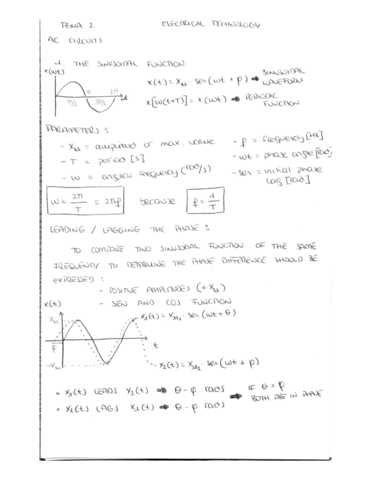 TEMA 2 ELECTRICAL TECHNOLOGY
AC CIRCUITS
1. THE SINUSOIDAL FUNCTION
x(wt)
π/2 π 3π/2 2π t
x(t) = XM · sen (wt + φ) ➡ SINUSOIDAL WAVEFORM
x[w(t+T)] = x(wt) ➡ PERIODIC FUNCTION
PARAMETERS:
- XM = amplitud or max. value
- T = period [s]
- w = angular frequency (rad/s)
- f = frequency [Hz]
- wt = phase angle [rad]
- sen = initial phase lag [rad]
w = 2π/T = 2πf because f = 1/T
LEADING / LAGGING THE PHASE:
TO COMPARE TWO SINUSOIDAL FUNCTION OF THE SAME
FREQUENCY TO DETERMINE THE PHASE DIFFERENCE SHOULD BE
EXPRESSED:
- POSITIVE AMPLITUDES (+XM)
- SEN AND COS FUNCTION
x(t)
XM
x1(t) = XM1 · sen (wt + θ)
φ
t
-XM
x2(t) = XM2 · sen (wt + φ)
• x1(t) LEADS x2(t) ➡ θ - φ rads
• x2(t) LAGS x1(t) ➡ θ - φ rads
➡ IF θ = φ
BOTH ARE IN PHASE